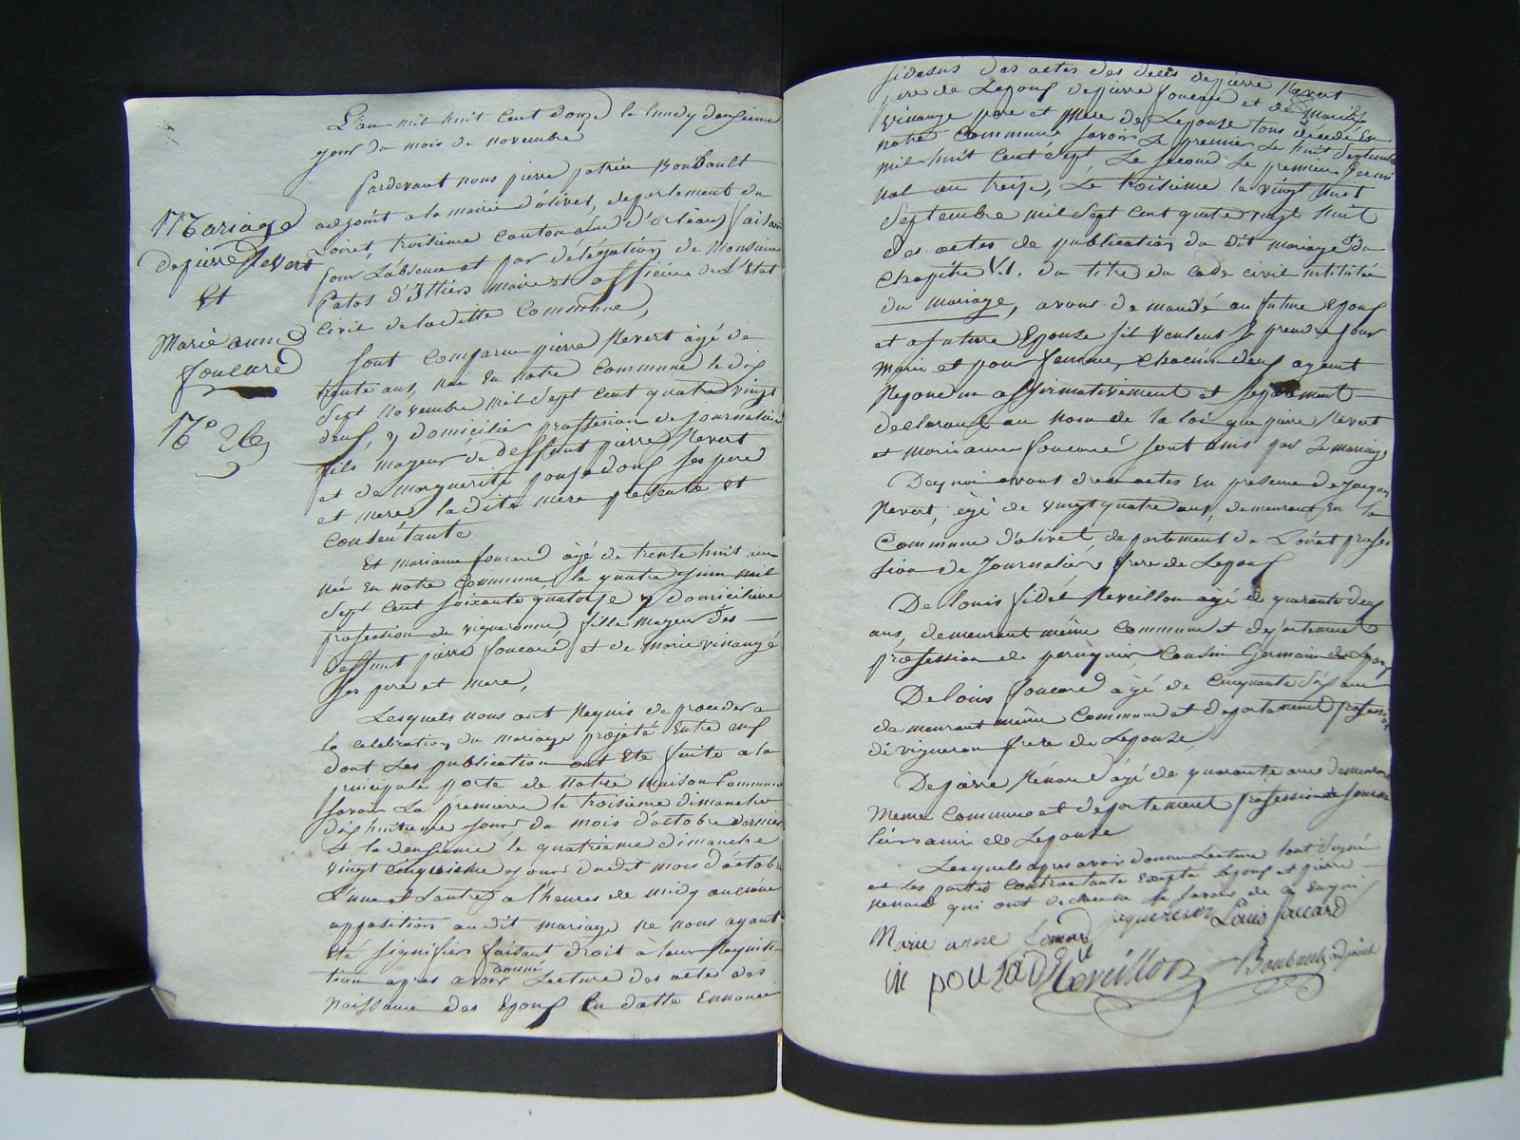 L'an mil huit Cent douze le lundy deuxieme
jour du mois de novembre
pardevant nous pierre patrice Boubault
adjoint a la mairie d'olivet, departement du
Loiret, troisieme canton d'Orléans faisant
pour L'absence et par délégation de Monsieur
Patas d'Illiers maire et officier de L'état
Civil de la ditte Commune,
Mariage
de pierre Revert
Et
Marie anne
foucard
N.o 26
Sont Comparu pierre Revert âgé de
trente ans, né En notre Commune le dix
Sept novembre mil Sept cent quatre vingt
deux, y domicilié profession de Journalier
fils majeur de deffunt pierre Revert
et de marguerite poujadoux Ses pere
et mere la dite mere presente et
Consentante
Et marianne foucard âgé de trente huit ans
née En notre Commune le quatre juin mil
Sept cent soixante quatorze y domiciliée
profession de vigneronne fille majeur des
deffunt pierre foucard et de marie vinangé
Ses pere et mere,
Lesquels nous ont Requis de proceder a
la celebration du mariage projeté Entre eux
dont Les publication ont Eté faite a la
principale porte de notre maison Commune
Savoir La premiere le troisieme dimanche
dix huitieme jour du mois d'octobre dernier
Et la deuxieme le quatrieme dimanche
vingt cinquieme jour dudit mois d'octobre
L'une et L'autre a l'heures de midy aucune
opposition audit mariage ne nous ayant
Eté signifier faisant droit à leur Requisi-
tion apres avoir donné Lecture des actes des
naissance des Epoux En datte Ennoncé
cidessus des actes des décès de pierre Revert
pere de Lepoux de pierre foucard et de marie
vinange pere et mere de Lepouse tous décédé En
notre Commune Savoir Le premier Le huit Septembre
mil huit Cent Sept Le Second Le premier germi
nal an treize, Le troisieme le vingt huit
Septembre mil Sept Cent quatre vingt huit
des actes de publication du dit mariage Et du
Chapitre VI. du titre du code civil intitulée
du mariage, avons demandé au future Epoux
et a future Epouse s'il veulent Se prendre pour
mari et pour femme, chacun deux ayant
Repondu affirmativement et Separement
declarons au nom de la loi que pierre Revert
et marianne foucard sont unis par Le mariage
Dequoi avons dressé actes En presence de Jacques
Revert, âgé de vingt quatre ans, demeurant En la
Commune d'olivet departement du Loiret profes
sion de Journalier frere de Lepoux
De louis fidel Reveillon agé de quarante deux
ans, demeurant même Commune et departement
profession de perruquier Cousin Germain de Lepoux
De louis foucard âgé de Cinquante Six ans
demeurant même Commune et departement profession
de vigneron frere de Lepouse
De pierre Renard âgé de quarante ans demeurant
même Commune et departement profession de Journa
lier ami de Lepouse
Lesquels apres avoir donné Lecture tout Signé
et Les parties Contractante Excepté Lepoux et pierre
Renard qui ont declaré ne Savoir de ce Enquis
Marie anne foucard Louis foucard
Reveillon Boubault adjoint